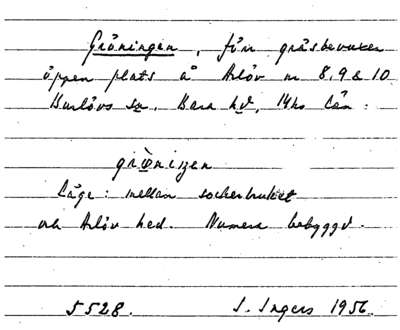 Gröningen, förr gräsbevuxen
öppen plats å Arlöv nr 8, 9 & 10
Burlövs sn. Bara hd, Mhs län.
grö̀nіŋen
Läge: mellan sockerbruket
och Arlöv hed. Numera bebyggd.
5528. I. Ingers 1956.